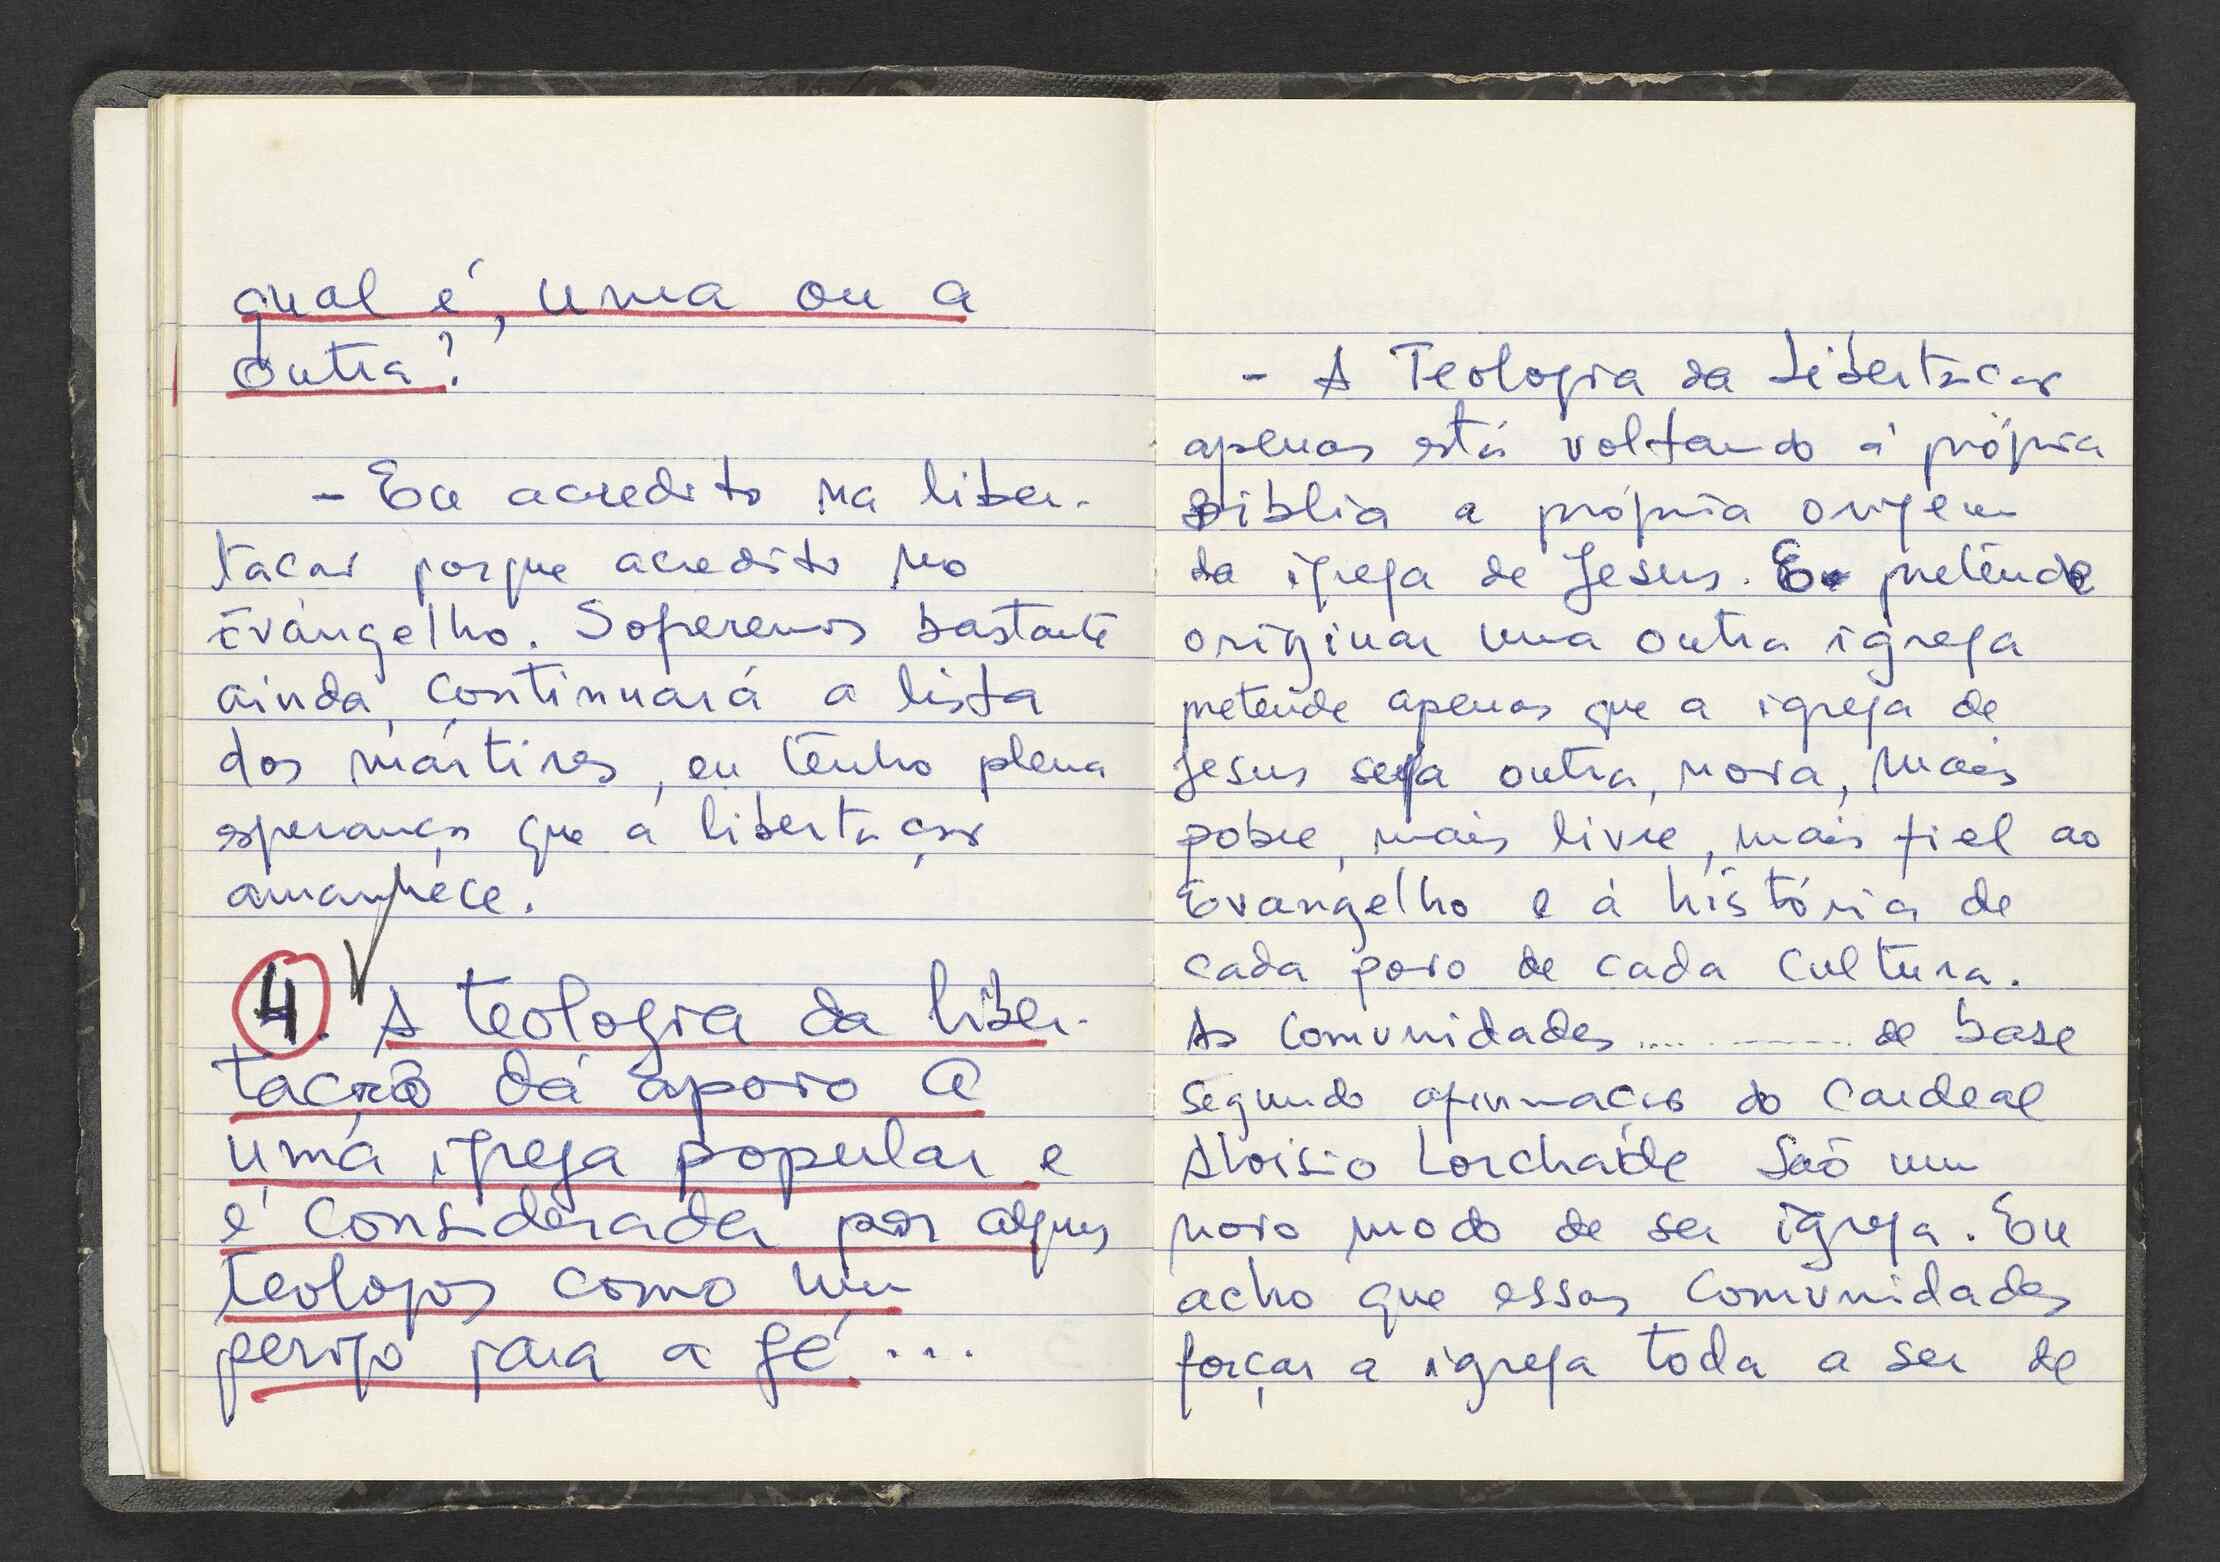 qual é, uma ou a
outra?
- Eu acredito na liber-
tacao porque acredito no
Evangelho. Soferemos bastante
ainda, continuará a lista
dos mártires, eu tenho plena
esperança que a libertaçao
amanhece.
4. A teologia da liber-
tação dá apoio a
uma igreja popular e
é considerada por algues
teologos como um
perigo para a fé...
- A Teologia da Libertacao
apenas está voltando á própria
Biblia a própria origem
da igreja de Jesus. pretende
originar uma outra igreja
pretende apenas que a igreja de
Jesus seja outra, nova, mais
pobre, mais livre, mais fiel ao
Evangelho e á história de
cada povo de cada cultura.
As Comunidades .... ------- de base
segundo afirmaçao do Cardeal
Aloisio Lorchaide Saõ um
novo modo de ser igreja. Eu
acho que essas Comunidades
forçar a igreja toda a ser de